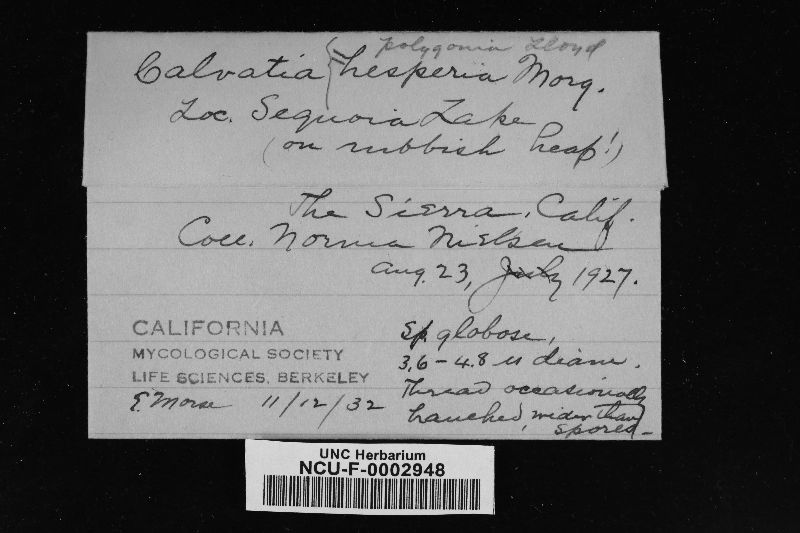 polygonia Lloyd
Calvatia { = hesperia Morg.
Loc. Sequoia Lake
(on rubbish heap!)
The Sierra, Calif.
Coll. Norma Nielsen
Aug. 23, July 1927.
CALIFORNIA
MYCOLOGICAL SOCIETY
LIFE SCIENCES, BERKELEY
E. Morse 11/12/32
Sp. globose,
3,6-4.8 u diam.
Thread occasionally
branched, wider than
spores-
UNC Herbarium
NCU-F-0002948